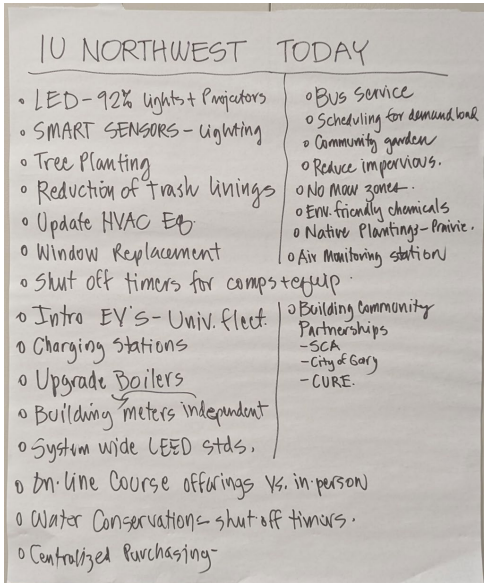 IU NORTHWEST TODAY
o LED-92% lights + Projectors
o SMART SENSORS - Lighting
o Tree Planting
o Reduction of trash linings
o Update HVAC Eq.
o Window Replacement
o Shut off timers for comps + equip.
o Intro EV's - Univ. fleet.
o Charging Stations
o Upgrade Boilers
o Building meters independent
o System wide LEED stds.
o On-line Course offerings vs. in-person
o Water Conservation - shut off timers.
o Centralized Purchasing -
o Bus Service
o Scheduling for demand load
o Community garden
o Reduce impervious.
o No Mow zones.
o Env. friendly chemicals
o Native Plantings - Prairie.
o Air Monitoring station
o Building Community
Partnerships
- SCA
- City of Gary
- CURE.